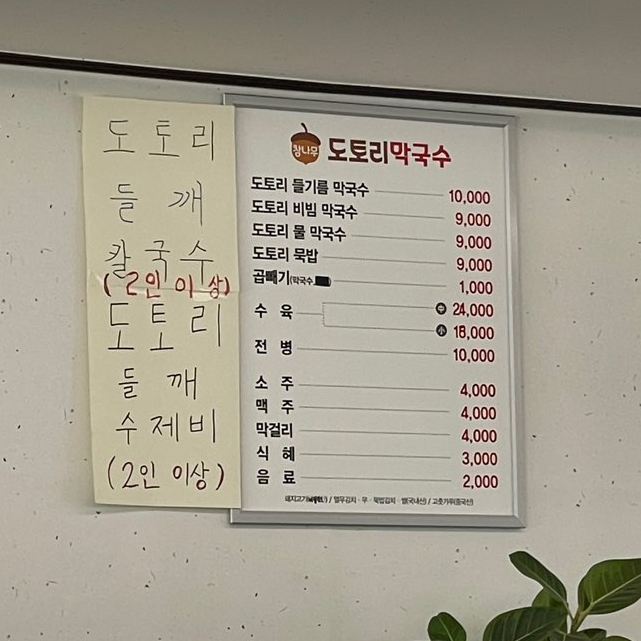 도토리
들깨
칼국수
(2인 이상)
도토리
들깨
수제비
(2인 이상)
참나무 도토리막국수
도토리 들기름 막국수 10,000
도토리 비빔 막국수 9,000
도토리 물 막국수 9,000
도토리 묵밥 9,000
곱빼기(막국수 1,000
수 육 中 24,000
小 18,000
전 병 10,000
소 주 4,000
맥 주 4,000
막걸리 4,000
식 혜 3,000
음 료 2,000
돼지고기 / 열무김치 · 무 · 묵밥김치 · 쌀(국내산) / 고춧가루(중국산)